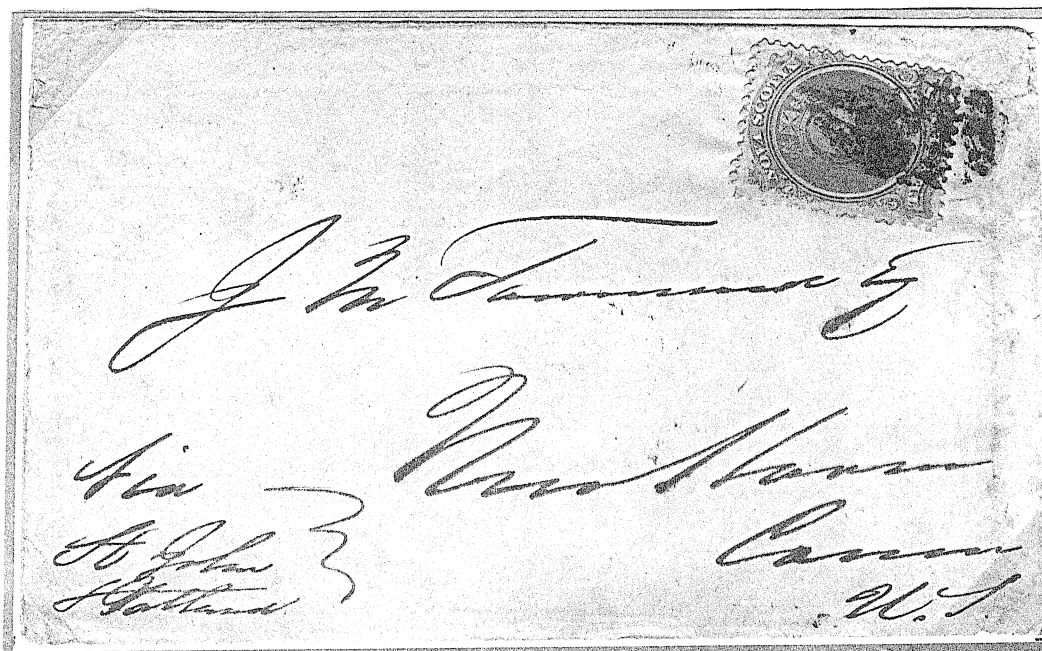 NOVA SCOTIA
J M Townsend Esq
New Haven
Conn
U.S.
Via
St John
& Portland